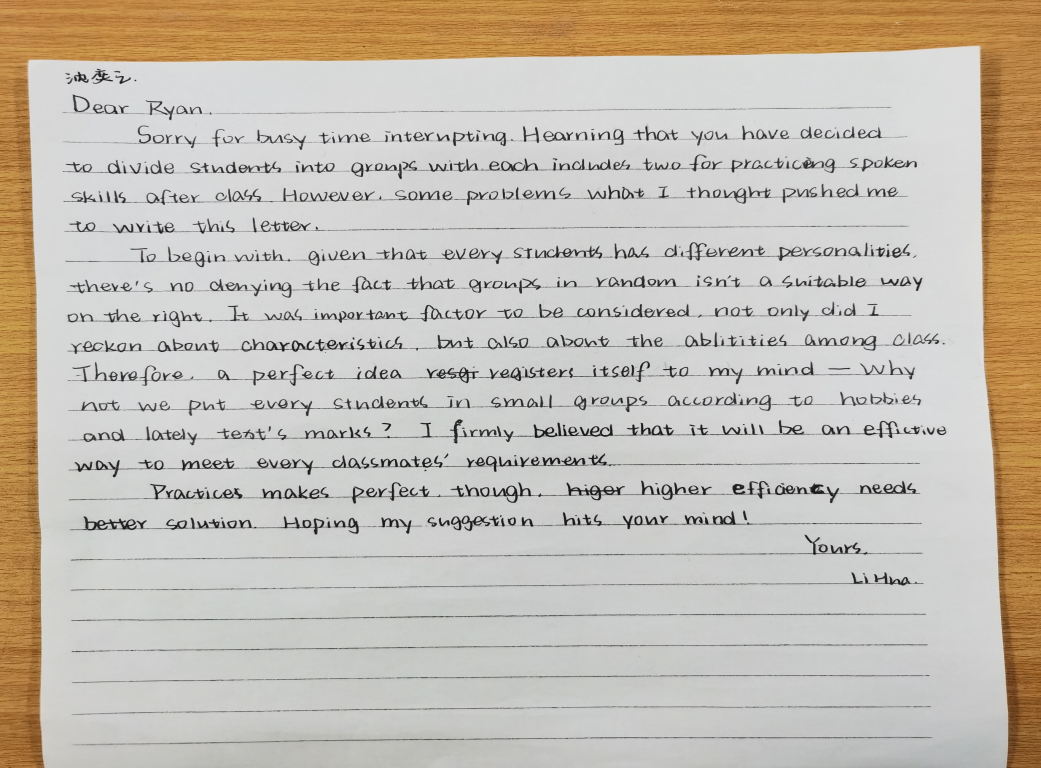 Dear Ryan.
Sorry for busy time interrupting. Hearning that you have decided
to divide students into groups with each includes two for practicing spoken
skills after class. However, some problems what I thought pushed me
to write this letter.
To begin with, given that every students has different personalities,
there's no denying the fact that groups in random isn't a suitable way
on the right. It was important factor to be considered, not only did I
reckon about characteristics, but also about the ablitities among class.
Therefore, a perfect idea resgi registers itself to my mind — Why
not we put every students in small groups according to hobbies
and lately text's marks? I firmly believed that it will be an effictive
way to meet every classmates' requirements.
Practices makes perfect, though, higer higher efficiency needs
better solution. Hoping my suggestion hits your mind!
Yours,
Li Hua.